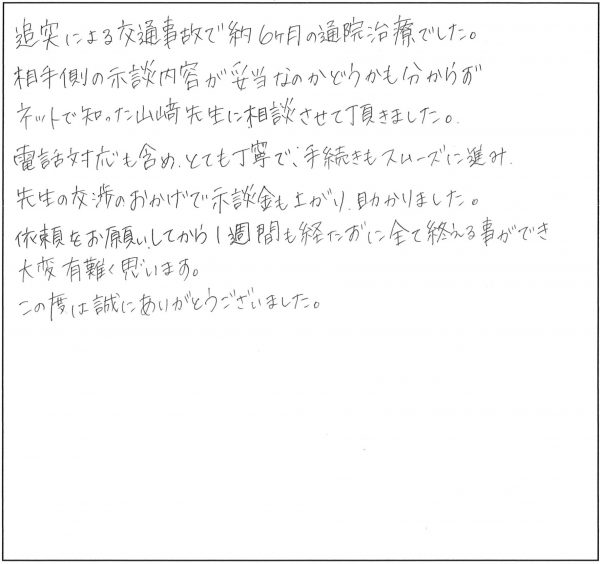 追突による交通事故で約6ヶ月の通院治療でした。
相手側の示談内容が妥当なのかどうかも分からず
ネットで知った山﨑先生に相談させて頂きました。
電話対応も含め、とても丁寧で、手続きもスムーズに進み、
先生の交渉のおかげで示談金も上がり、助かりました。
依頼をお願いしてから1週間も経たずに全て終える事ができ
大変有難く思います。
この度は誠にありがとうございました。